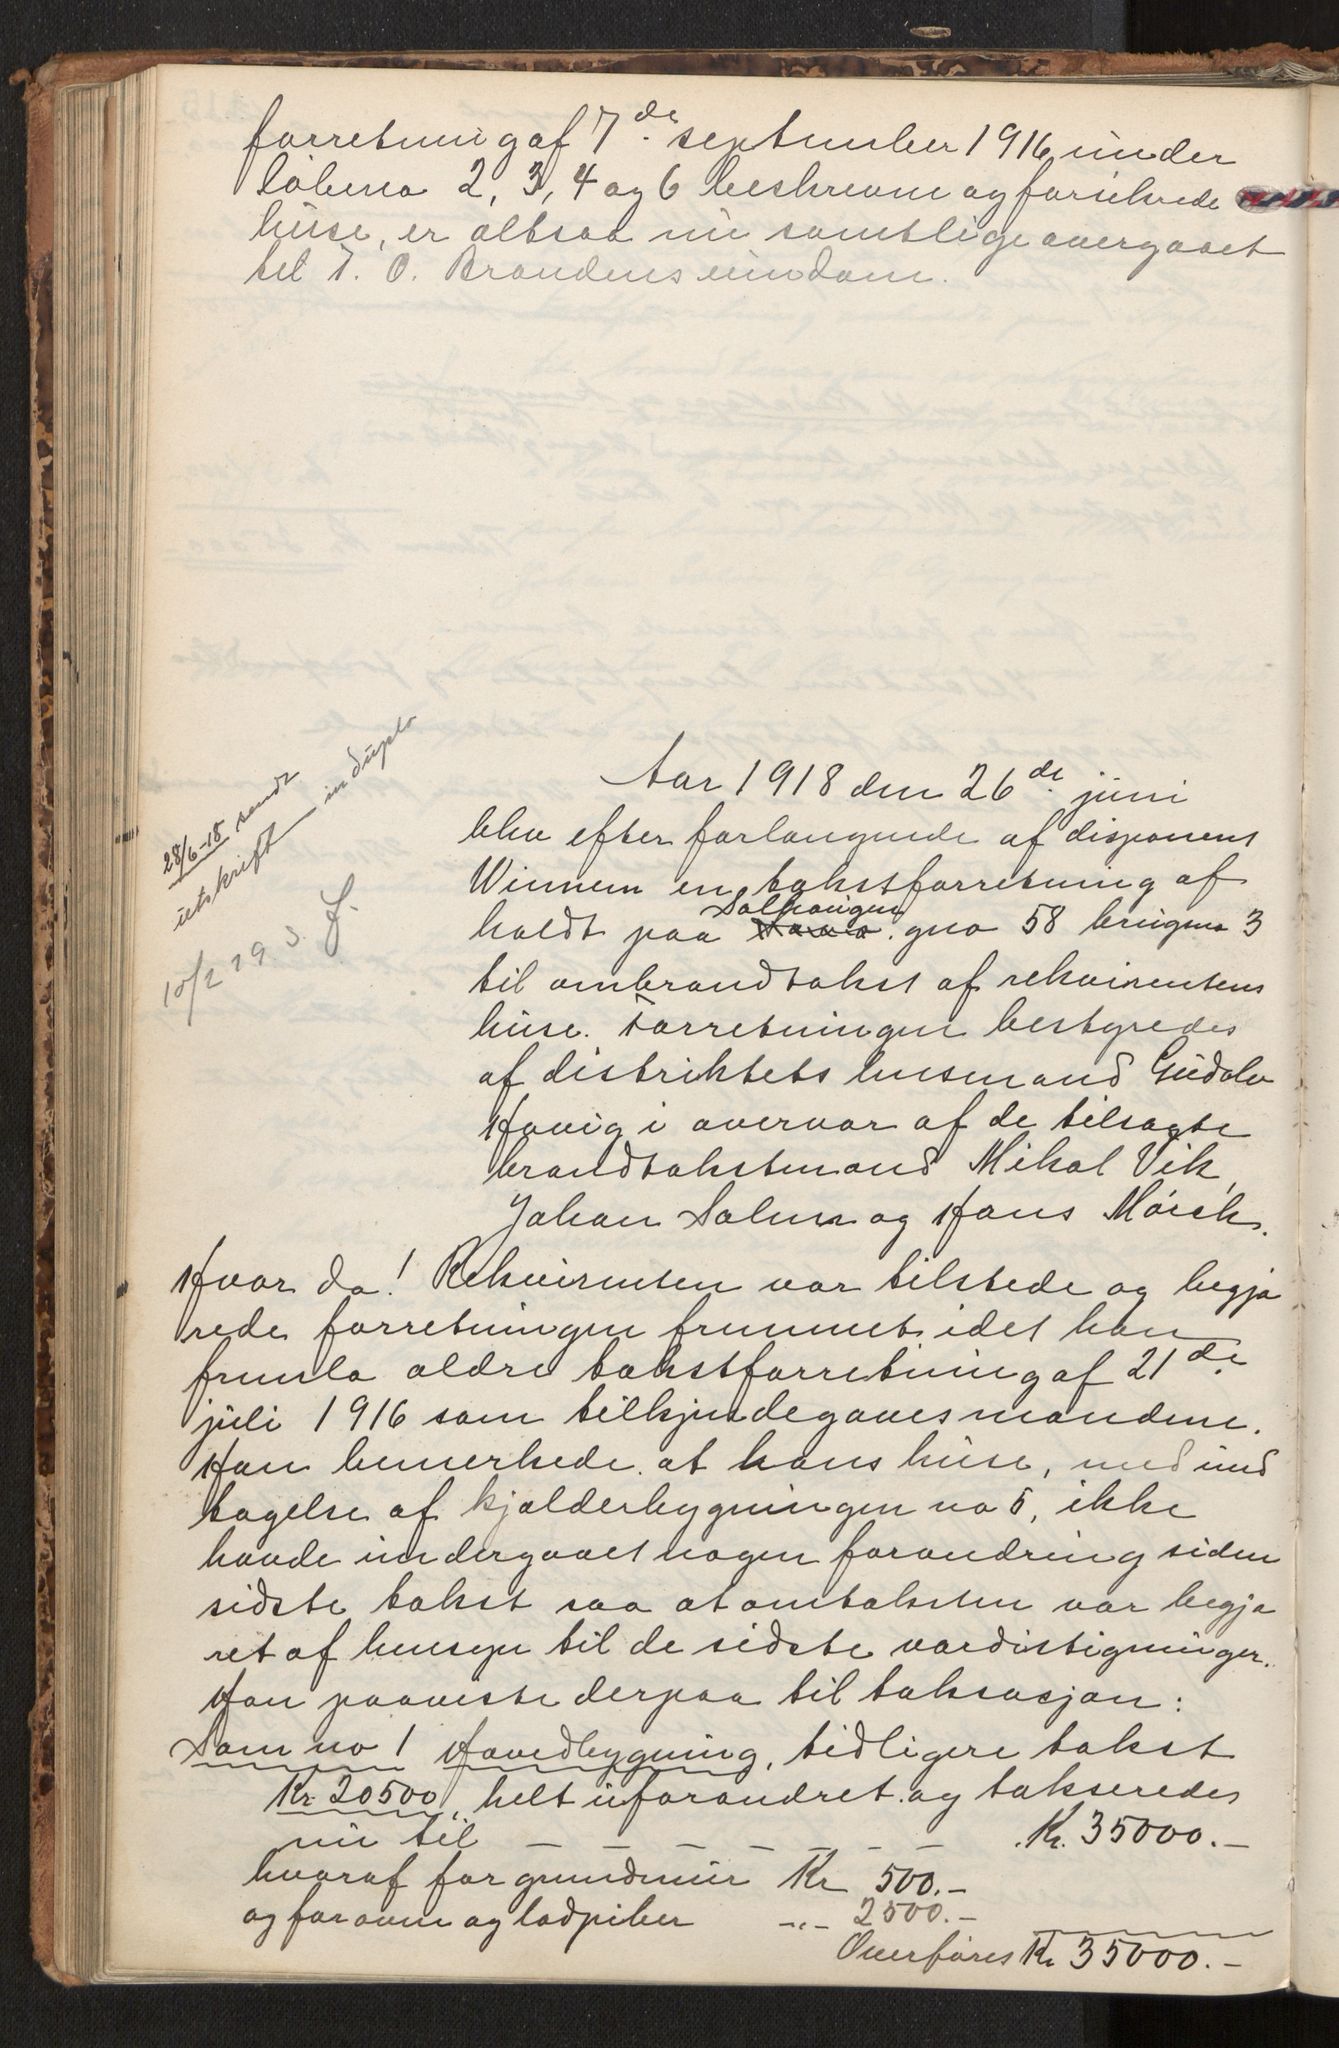 forretning af 7de september 1916 under
løbeno 2, 3, 4 og 6 beskrevne og forsikrede
huse, er altsaa nu samtlige overgaaet
til T. O. Brandens eiendom.
28/6-18 sendt
utskrift in duplo
10/2 29
Aar 1918 den 26de juni
blev efter forlangende af disponent
Winnem en takstforretning af
holdt paa Solhaugen gno 58 brugsno 3
til ombrandtakst af rekvirentens
huse. Forretningen bestyredes
af distriktets lensmand Gudolv
Høvig i overvær af de tilsagte
brandtakstmænd Mikal Vik,
Johan Solem og Hans Mörch.
Hvor da! Rekvirenten var tilstede og begjæ
rede forretningen fremmet idet han
fremla ældre takstforretning af 21de
juli 1916 som tilkjendegaves mændene.
Han bemerkede at hans huse, med und
tagelse af kjælderbygningen no 5, ikke
havde undergaaet nogen forandring siden
sidste takst saa at omtaksten var begjæ
ret af hensyn til de sidste værdistigninger.
Han paaviste derpaa til taksasjon:
Som no 1 Hovedbygning, tidligere takst
Kr. 20500, helt uforandret og takseredes
nu til — — — — — — — Kr. 35000.–
hvoraf for grundmur Kr 500.–
og for ovne og ladpiber -"- 2500.–
Overføres Kr 35000.–